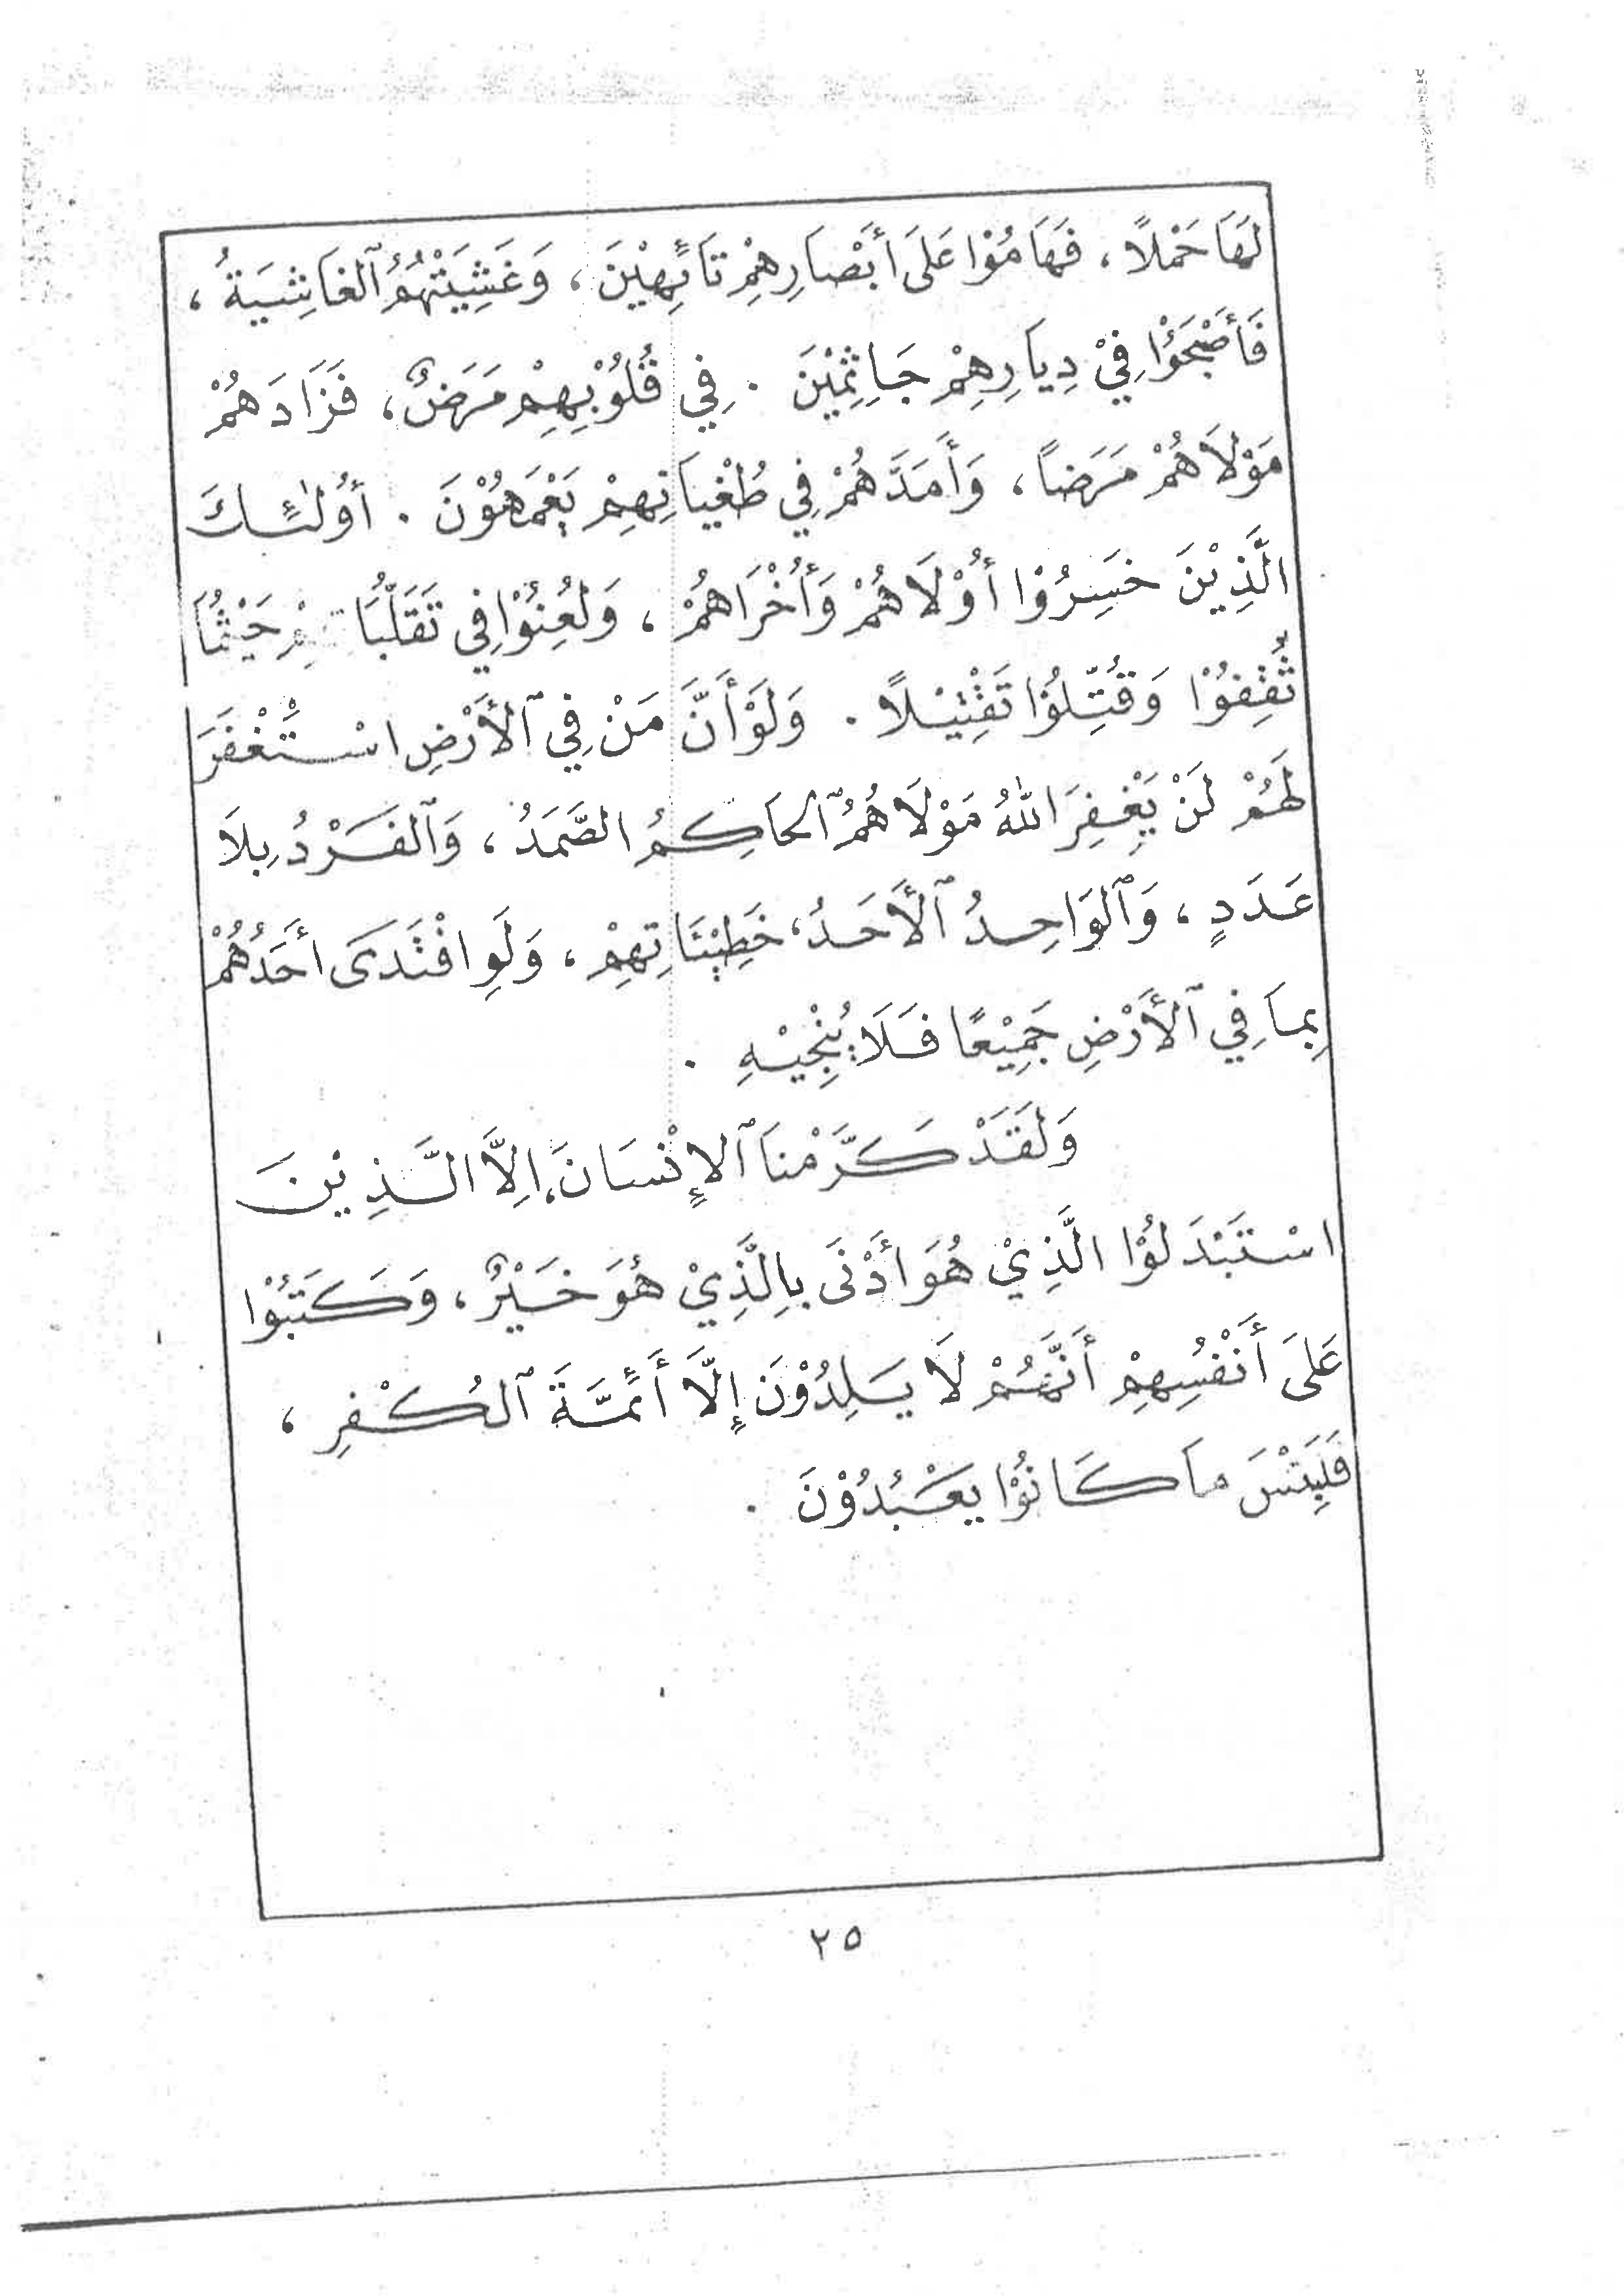 لَهَا حَمْلاً، فَهَامُوْا عَلَى أَبْصَارِهِمْ تَائِهِيْنَ، وَغَشِيَتْهُمُ ٱلغَاشِيَةُ،
فَأَصْبَحُوْا فِيْ دِيَارِهِمْ جَاثِمِيْنَ . فِي قُلُوْبِهِمْ مَرَضٌ، فَزَادَهُمْ
مَوْلاَهُمْ مَرَضاً، وَأَمَدَّهُمْ فِي طُغْيَانِهِمْ يَعْمَهُوْنَ . أُوْلٰئِكَ
الَّذِيْنَ خَسِرُوْا أُوْلَاهُمْ وَأُخْرَاهُمْ، وَلُعِنُوْا فِي تَقَلُّبَاتِهِمْ حَيْثُمَا
ثُقِفُوْا وَقُتِّلُوْا تَقْتِيْلاً . وَلَوْ أَنَّ مَنْ فِي ٱلأَرْضِ اسْتَغْفَرَ
لَهُمْ لَنْ يَغْفِرَ اللهُ مَوْلَاهُمُ ٱلحَاكِمُ الصَّمَدُ، وَٱلفَرْدُ بِلاَ
عَدَدٍ، وَٱلوَاحِدُ ٱلأَحَدُ، خَطِيْئَاتِهِمْ، وَلَوِ افْتَدَى أَحَدُهُمْ
بِمَا فِي ٱلأَرْضِ جَمِيْعًا فَلَا يُنْجِيْهِ .
وَلَقَدْ كَرَّمْنَا ٱلإِنْسَانَ، إِلاَّ الَّذِيْنَ
اسْتَبْدَلُوْا الَّذِيْ هُوَ أَدْنَى بِالَّذِيْ هُوَ خَيْرٌ، وَكَتَبُوْا
عَلَى أَنْفُسِهِمْ أَنَّهُمْ لَا يَلِدُوْنَ إِلَّا أَئِمَّةَ ٱلكُفْرِ،
فَلَبِئْسَ مَا كَانُوْا يَعْبُدُوْنَ .
٢٥